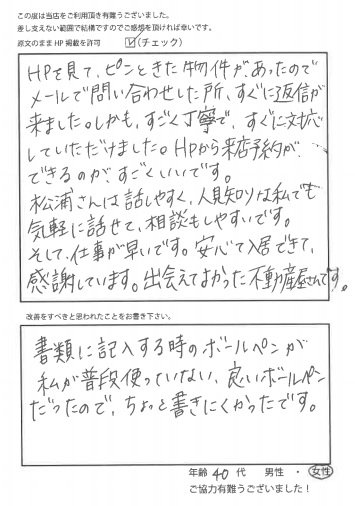 この度は当店をご利用頂き有難うございました。
差し支えない範囲で結構ですのでご感想を頂ければ幸いです。
原文のまま HP 掲載を許可 ☑(チェック)
HPを見て、ピンときた物件が、あったので
メールで問い合わせした所、すぐに返信が
来ました。しかも、すごく丁寧で、すぐに対応
していただけました。HPから来店予約が
できるのが、すごくいいです。
松浦さんは話しやすく、人見知りな私でも
気軽に話せて、相談もしやすいです。
そして、仕事が早いです。安心して入居できて、
感謝しています。出会えてよかった不動産屋さんです。
改善をすべきと思われたことをお書き下さい。
書類に記入する時のボールペンが
私が普段使っていない、良いボールペン
だったので、ちょっと書きにくかったです。
年齢 40 代 男性 ・ 女性
ご協力有難うございました!